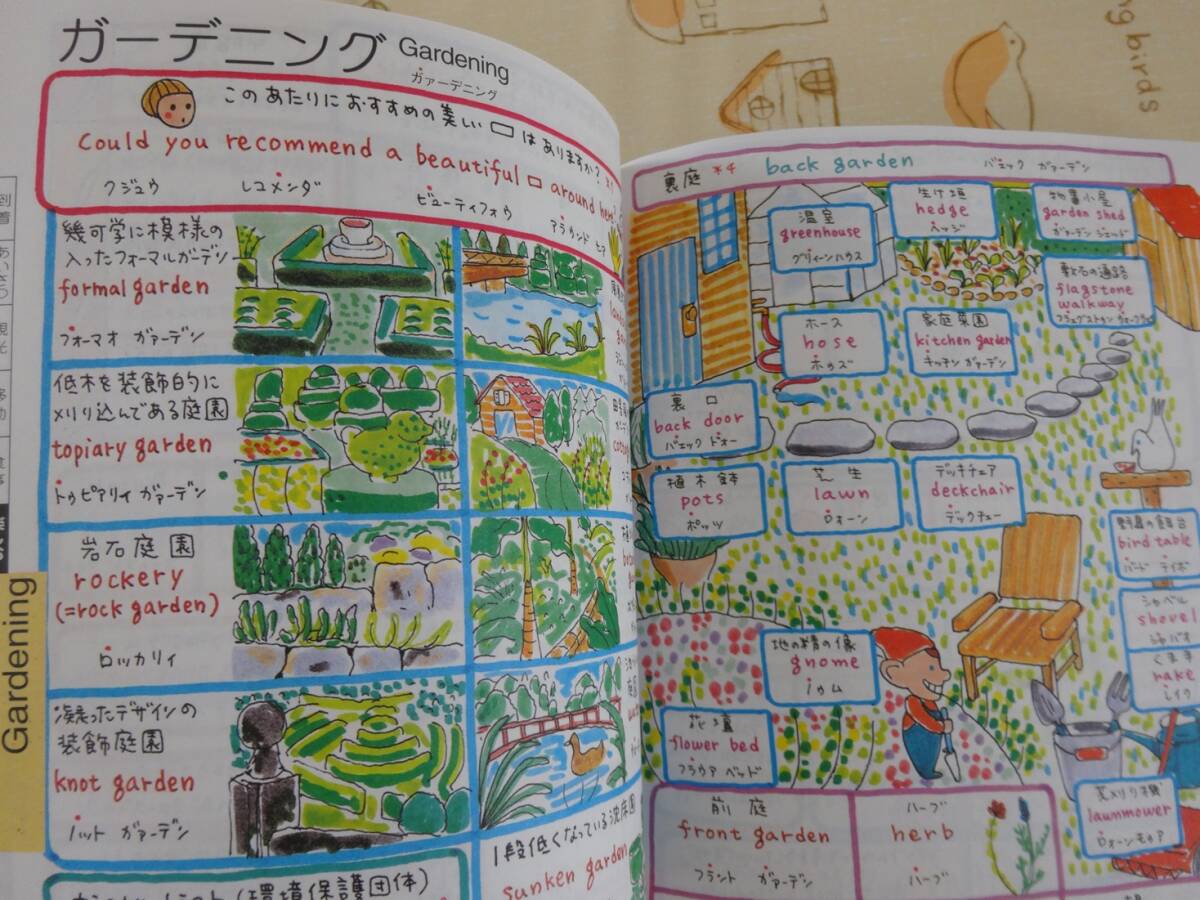 ガーデニング Gardening
ガァーデニング
このあたりにおすすめの美しい □ はありますか?
Could you recommend a beautiful □ around here?
クジュウ レコメンダ ビューティフォウ アラウンド
幾何学に模様の
入ったフォーマルガーデン
formal garden
フォーマオ ガァーデン
低木を装飾的に
刈り込んである庭園
topiary garden
トゥピアリィ ガァーデン
岩石庭園
rockery
(=rock garden)
ロッカリィ
凝ったデザインの
装飾庭園
knot garden
ノット ガァーデン
1段低くなっている沈床園
sunken garden
(環境保護団体)
Gardening
裏庭 *4 back garden バェック ガァーデン
温室
greenhouse
グリーンハウス
生け垣
hedge
ヘッジ
物置小屋
garden shed
ガァーデン シェッド
敷石の通路
flagstone
walkway
ホース
hose
ホゥズ
家庭菜園
kitchen garden
キッチン ガァーデン
裏口
back door
バェック ドォー
植木鉢
pots
ポッツ
芝生
lawn
ロォーン
デッキチェア
deckchair
デックチェー
野鳥の食事台
bird table
バード テイボ
シャベル
shovel
シャバオ
くまで
rake
レイク
地の精の像
gnome
ノゥム
花壇
flower bed
フラゥア ベッド
芝刈り機
lawnmower
ロォーンモゥア
前庭
front garden
フラント ガァーデン
ハーブ
herb
ハーブ
ng birds